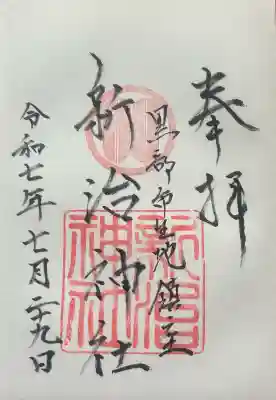 奉拝
黒部市生地鎮主
新治神社
令和七年七月二十九日
新治
神社